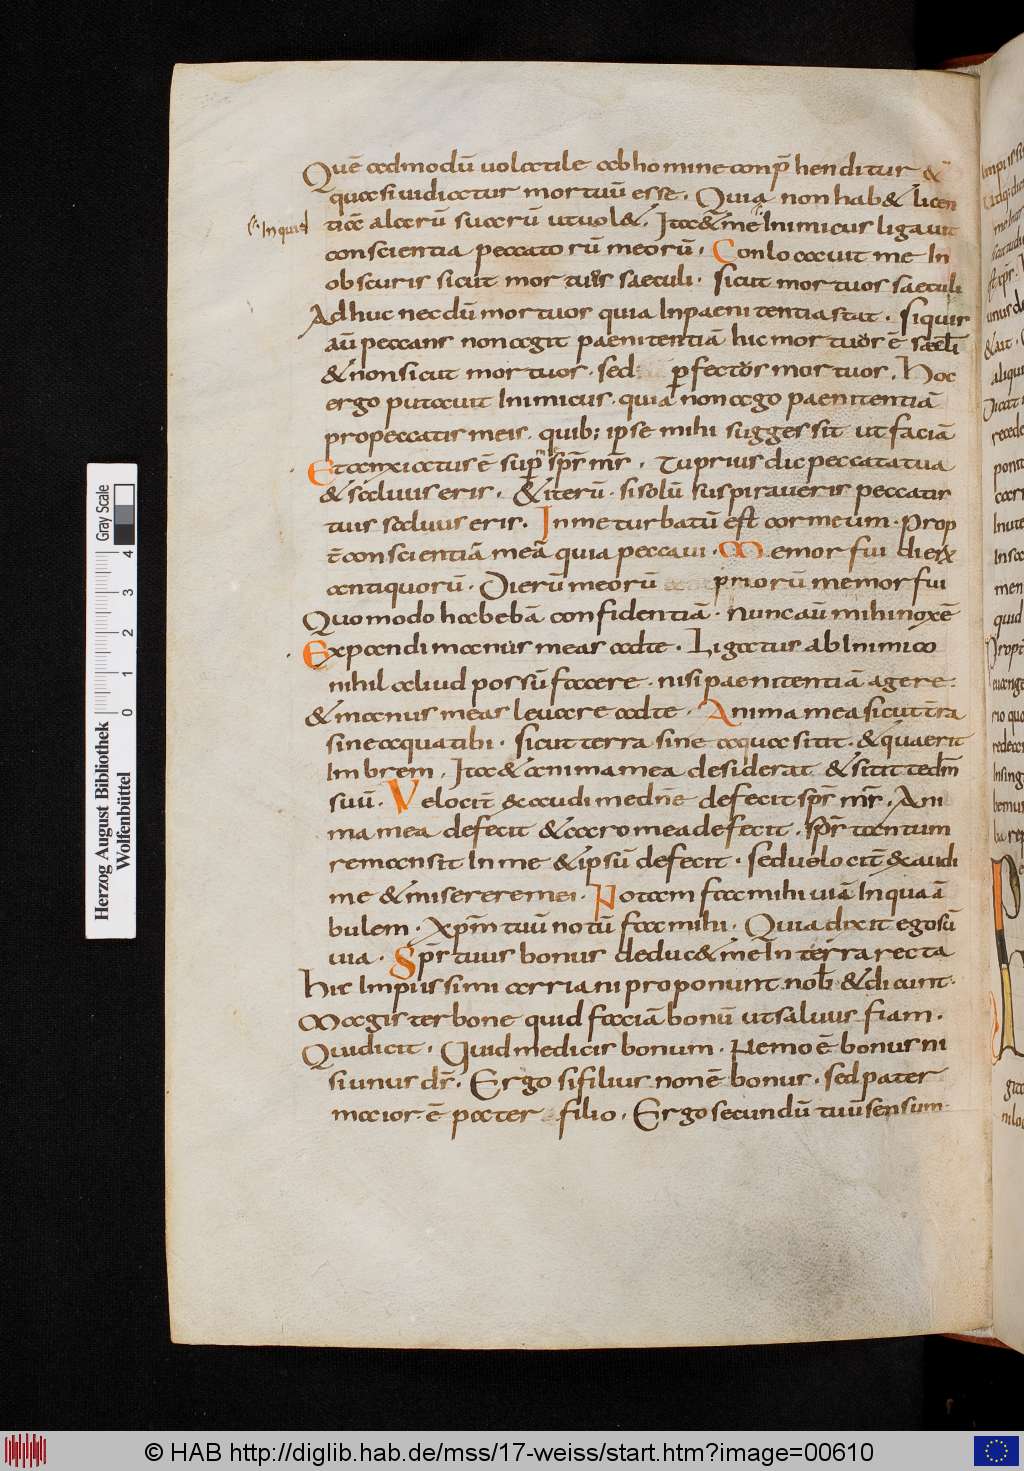 Quē admodū volatile ab homine conp̄henditur &
quasi uidiatur mortuū esse. Quia non hab& licen
tiā alarū suarū ut uol&. Ita& me Inimicus ligauit
In quid
conscientia peccatorū meorū. Conlocauit me In
obscuris sicut mortuus saeculi. sicut mortuos saeculi
Adhuc necdū mortuos quia In paenitentia stat. si quis
aū peccans non agit paenitentiā hic mortuos ē saecli
& non sicut mortuos. sed p̱fectos mortuos. Hoc
ergo putauit Inimicus. quia non ago paenitentiā
pro peccatis meis. quib; ipse mihi suggessit ut faciā
Et anxiatus ē sup̄ sp̄s m̄s. Tu prius dic peccata tua
& saluus eris. & iterū. si solū suspiraueris peccatis
tuis saluus eris. In me turbatū est cor meum. Prop
t̄ conscientiā meā quia peccaui. Memor fui dies
antiquorū. Dierū meorū priorū memor fui
Quomodo habebā confidentiā. nunc aū mihi
Expandi manus meas ad te. Ligatus ab Inimico
nihil aliud possū facere. nisi paenitentiā agere.
& manus meas leuare ad te. Anima mea sicut t̄ra
sine aqua tibi. sicut terra sine aqua sitit. & quaerit
Imbrem. Ita & anima mea desiderat & sitit te dm̄
suū. Velocit̄ exaudi me dn̄e defecit sp̄s m̄s. Ani
ma mea defecit & caro mea defecit. sp̄s tantum
remansit In me & ipsū defecit. sed uelocit̄ exaudi
me & miserere mei. Notam fac mihi uiā In qua ā
bulem. Xp̄m tuū notū fac mihi. Quia dixit ego sū
uia. Sp̄s tuus bonus deduc& me In terra recta
Hic Impiissimi arriani proponunt nob̄ & dicunt.
Magister bone quid faciā bonū ut saluus fiam.
Qui dicit. Quid me dicis bonum. Nemo ē bonus ni
si unus d̄s. Ergo si filius non ē bonus. sed pater
maior ē pater filio. Ergo secundū tuū sensum
Herzog August Bibliothek
Wolfenbüttel
0 1 2 3 4
Gray Scale
© HAB http://diglib.hab.de/mss/17-weiss/start.htm?image=00610